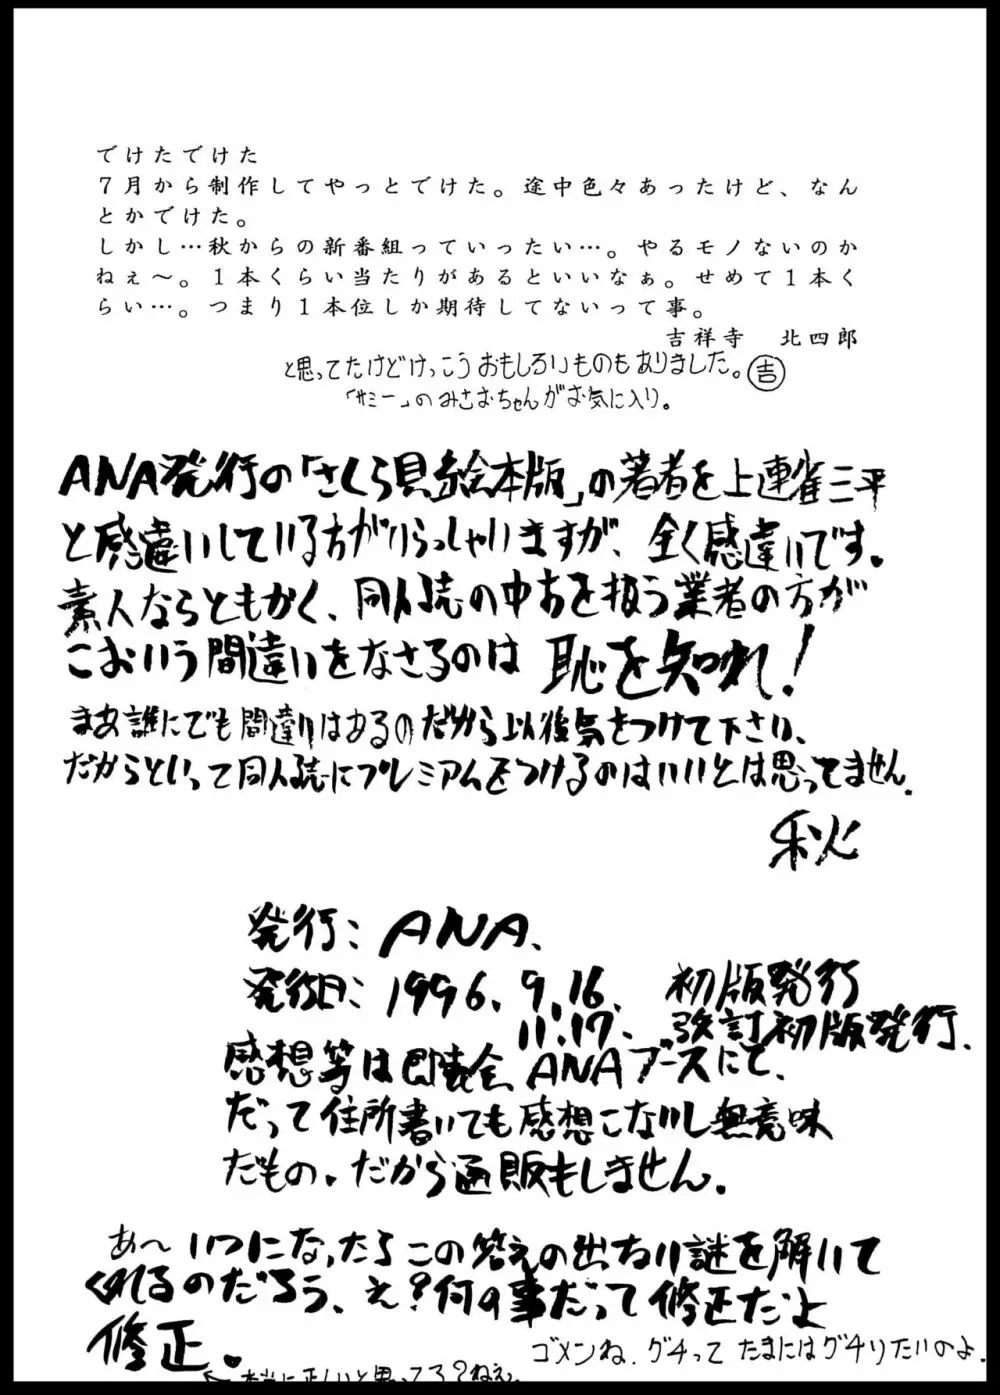 でけたでけた
7月から制作してやっとでけた。途中色々あったけど、なん
とかでけた。
しかし…秋からの新番組っていったい…。やるモノないのか
ねぇ～。1本くらい当たりがあるといいなぁ。せめて1本く
らい…。つまり1本位しか期待してないって事。
吉祥寺　北四郎
と思ってたけどけっこうおもしろいものもありました。吉
「サミー」のみさおちゃんがお気に入り。
ANA発行の「さくら貝絵本版」の著者を上連雀三平
と感違いしている方がいらっしゃいますが、全く感違いです。
素人ならともかく、同人誌の中古を扱う業者の方が
こおいう間違いをなさるのは恥を知れ!
まあ誰にでも間違いはあるのだから以後気をつけて下さい、
だからといって同人誌にプレミアムをつけるのはいいとは思ってません.
秋
発行:ANA.
発行日:1996.9.16. 初版発行
11.17. 改訂初版発行.
感想等は即売会ANAブースにて、
だって住所書いても感想こないし無意味
だもの。だから通販もしません。
あ～いつになったらこの答えの出ない謎を解いて
くれるのだろう、え?何の事だって修正だよ
修正。
ゴメンね.グチってたまにはグチりたいのよ.
←本当に正しいと思ってる?ねぇ。